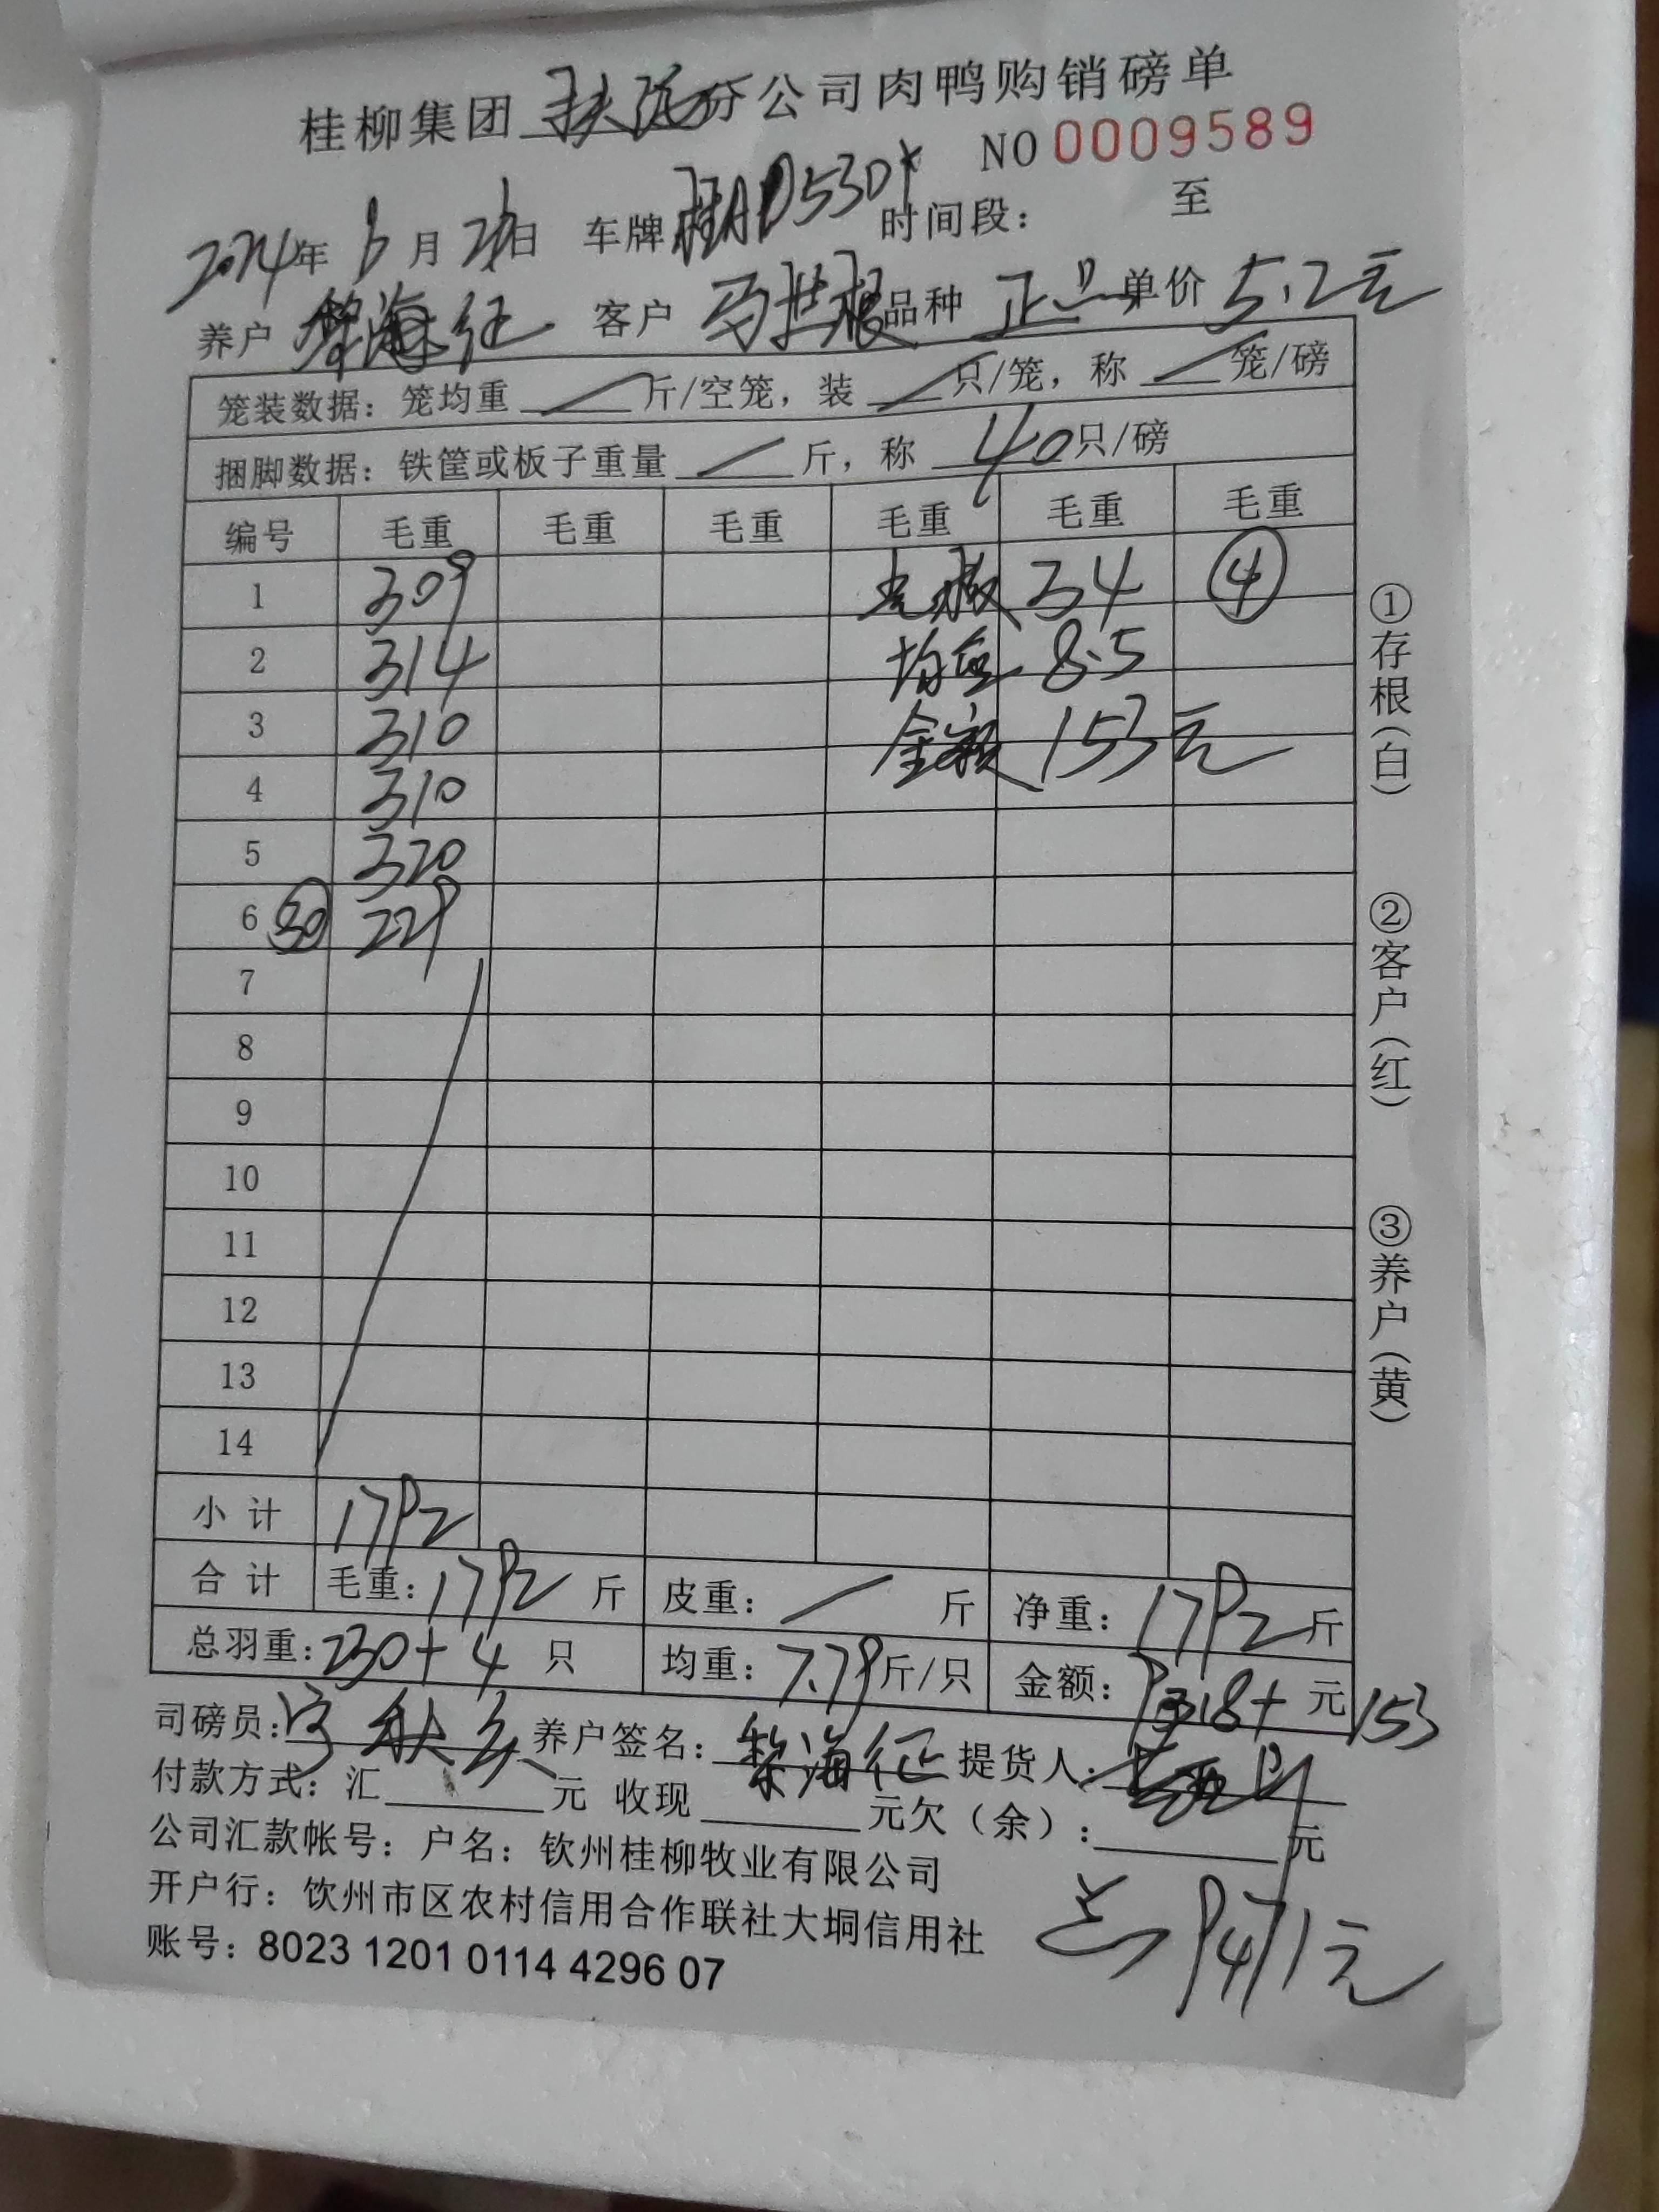 桂柳集团 分公司肉鸭购销磅单
NO 0009589
2024年 月 日 车牌 桂A 时间段: 至
养户 黎海征 客户 品种 正品 单价 5.2元
笼装数据: 笼均重 斤/空笼, 装 只/笼, 称 笼/磅
捆脚数据: 铁筐或板子重量 斤, 称 40 只/磅
编号 毛重 毛重 毛重 毛重 毛重 毛重
1 309 34 ④
2 314 均重 8.5
3 310 金额 153元
4 310
5 320
6 ㉚ 229
7
8
9
10
11
12
13
14
小计 1792
合计 毛重: 1792 斤 皮重: 斤 净重: 1792 斤
总羽重: 230+4 只 均重: 7.79 斤/只 金额: 9318+ 元 153
司磅员: 养户签名: 黎海征 提货人:
付款方式: 汇 元 收现 元 欠（余）: 元
公司汇款帐号: 户名: 钦州桂柳牧业有限公司
开户行: 饮州市区农村信用合作联社大垌信用社
账号: 8023 1201 0114 4296 07
总 9471元
①存根（白）
②客户（红）
③养户（黄）